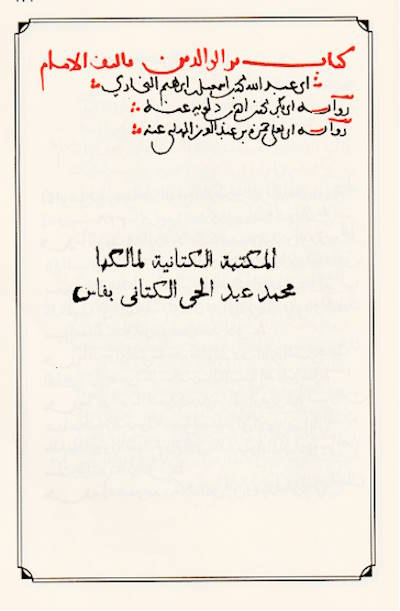 كتاب بر الوالدين تاليف الامام
ابى عبد الله محمد بن اسمعيل بن ابرهيم البخاري
رواية ابى بكر محمد بن احمد بن دلويه عنه
رواية ابى يعلى حمزة بن عبد العزيز المهلبى عنه
المكتبة الكتانية لمالكها
محمد عبد الحى الكتانى بفاس